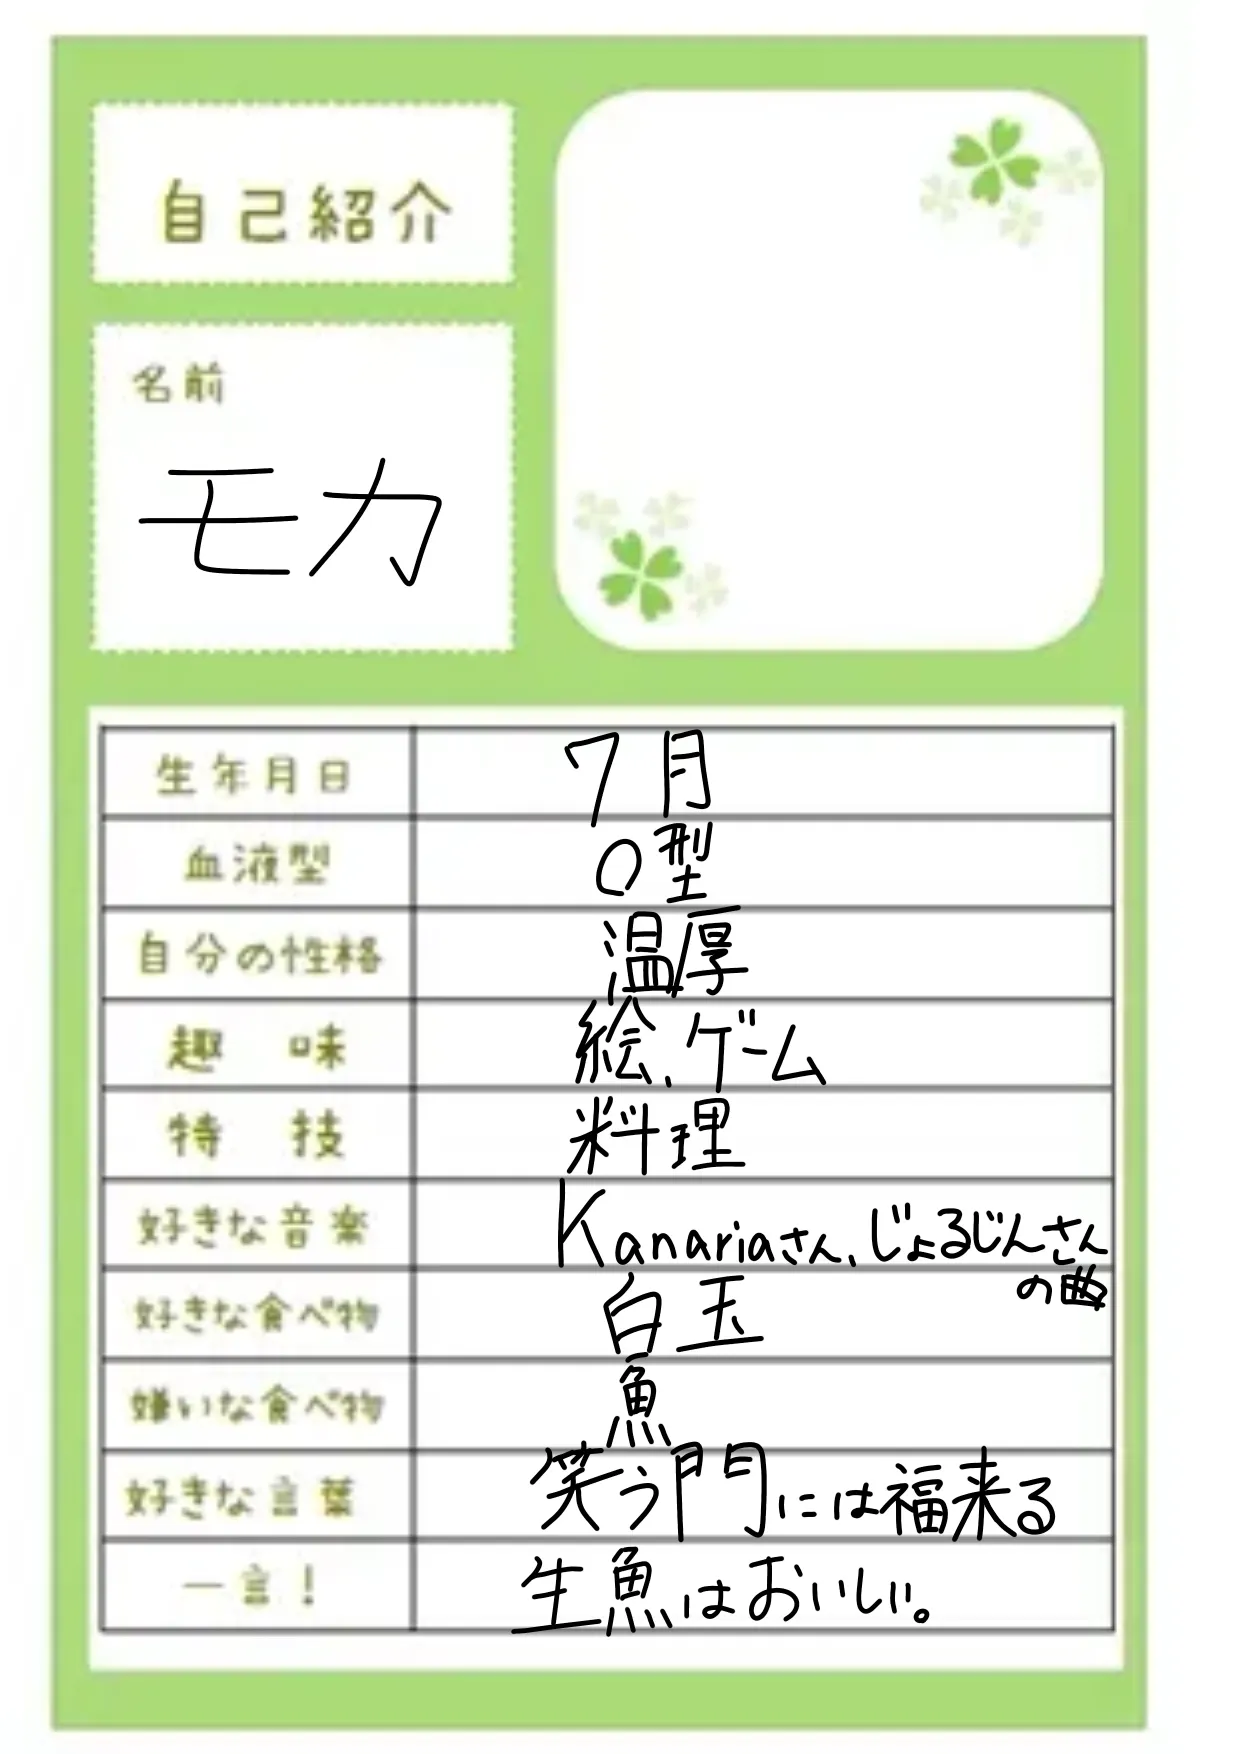 自己紹介
名前
モカ
生年月日 7月
血液型 O型
自分の性格 温厚
趣味 絵、ゲーム
特技 料理
好きな音楽 Kanariaさん、じょるじんさん
の曲
好きな食べ物 白玉
嫌いな食べ物 魚
好きな言葉 笑う門には福来る
一言! 生魚はおいしい。